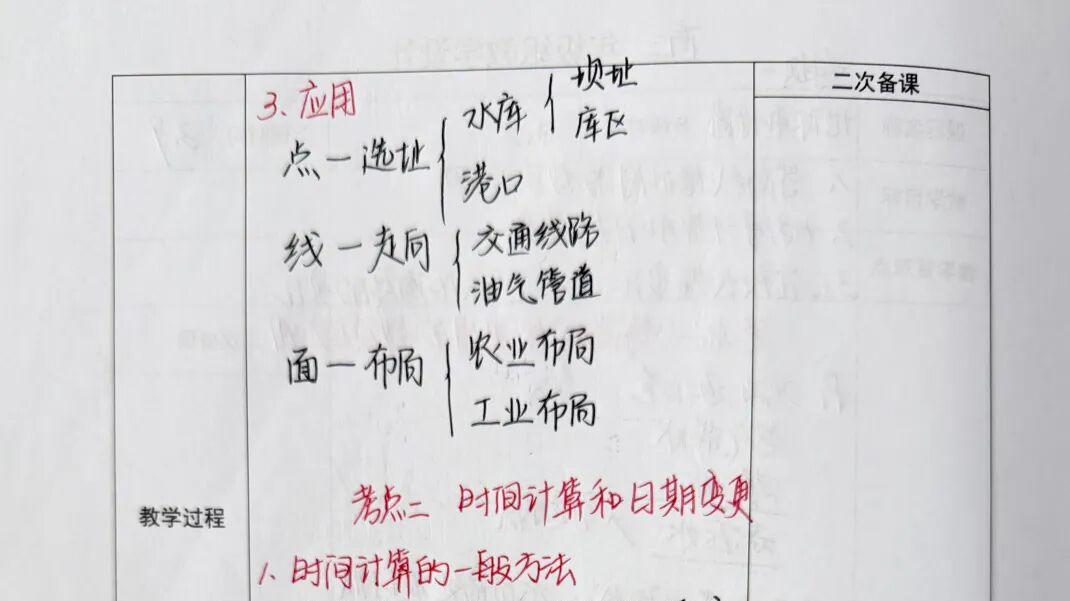 二次备课
3. 应用
点—选址
水库
坝址
库区
港口
线—走向
交通线路
油气管道
面—布局
农业布局
工业布局
教学过程
考点二 时间计算和日期变更
1、时间计算的一般方法